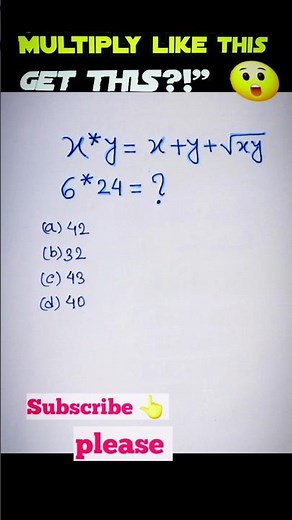 MULTIPLY LIKE THIS
GET THIS?!”
x*y = x+y+√xy
6*24 = ?
(a) 42
(b) 32
(c) 43
(d) 40
Subscribe
please